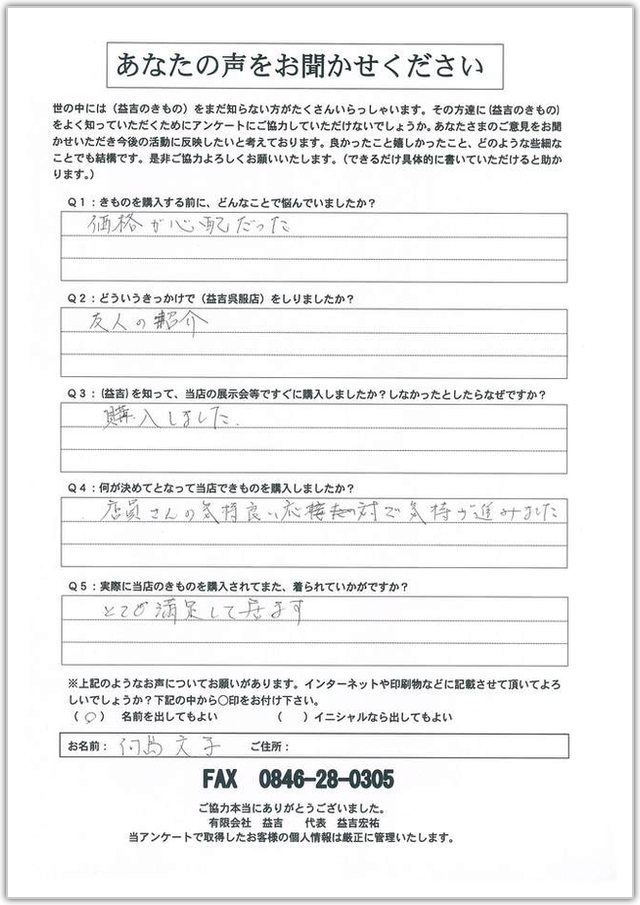 あなたの声をお聞かせください
世の中には（益吉のきもの）をまだ知らない方がたくさんいらっしゃいます。その方達に(益吉のきもの)
をよく知っていただくためにアンケートにご協力していただけないでしょうか。あなたさまのご意見をお聞
かせいただき今後の活動に反映したいと考えております。良かったこと嬉しかったこと、どのような些細な
ことでも結構です。是非ご協力よろしくお願いいたします。（できるだけ具体的に書いていただけると助か
ります。）
Ｑ１：きものを購入する前に、どんなことで悩んでいましたか？
価格が心配だった
Ｑ２：どういうきっかけで（益吉呉服店）をしりましたか？
友人の紹介
Ｑ３：(益吉)を知って、当店の展示会等ですぐに購入しましたか？しなかったとしたらなぜですか？
購入しました.
Ｑ４：何が決めてとなって当店できものを購入しましたか？
店員さんの気持良い応対で気持が進みました
Ｑ５：実際に当店のきものを購入されてまた、着られていかがですか？
とても満足して居ます
※上記のようなお声についてお願いがあります。インターネットや印刷物などに記載させて頂いてよろ
しいでしょうか？下記の中から〇印をお付け下さい。
（ 〇 ） 名前を出してもよい （ ）イニシャルなら出してもよい
お名前： 文子 ご住所：
FAX 0846-28-0305
ご協力本当にありがとうございました。
有限会社 益吉 代表 益吉宏祐
当アンケートで取得したお客様の個人情報は厳正に管理いたします。